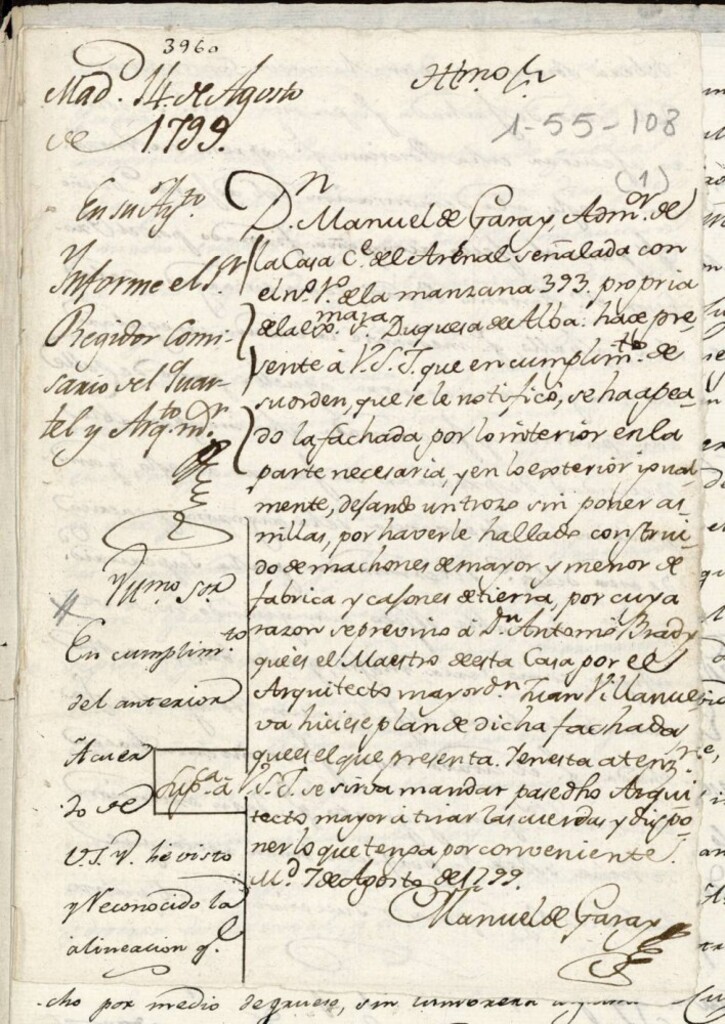 3960
Mad. 14 de Agosto
de 1799.
Yltmo Sr
1-55-108
(1)
En su Aytto.
Ynforme el Sr
Regidor Comi-
sario del Quar-
tel y Arqto. mr.
Dn. Manuel de Garay, Admor. de
la Casa Ce. del Arenal señalada con
el no. 1o. de la manzana 393. propria
de la exma. Sra. Duquesa de Alba: hace pre-
sente á V.S.Y. que en cumplimto. de
su orden, que se le notificó, se ha apea-
do la fachada por lo interior en la
parte necesaria, y en lo exterior igual-
mente, dejando un trozo sin poner as-
nillas, por haverle hallado construi-
do de machones de mayor y menor de
fabrica y cajones de tierra, por cuya
razon se previno á Dn. Antonio Brady
que es el Maestro de esta Casa por el
Arquitecto mayor dn. Juan Villanue-
va hiciese plan de dicha fachada
que es el que presenta. Y en esta atenzne,
Supca. á V.S.Y. se sirva mandar pase dho Arqui-
tecto mayor á tirar las cuerdas y dispo-
ner lo que tenga por conveniente.
Md. 7 de Agosto de 1799.
Manuel de Garay
Yllmo. Sor
En cumplimto.
del anterior
Acuer
do de
V.S.Y. he visto
y Reconocido la
alineacion qe.
cho por medio de grueso, sin